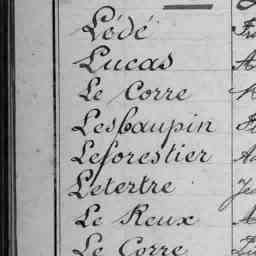 Lédé
Lucas
Le Corre
Lesbaupin
Leforestier
Letertre
Le Reux
Le Corre